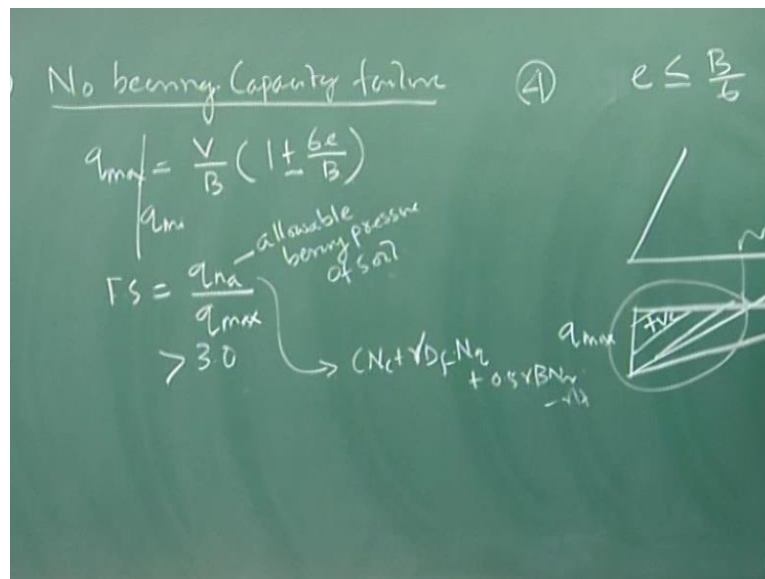 No bearing Capacity failure
q max = V/B ( 1 ± 6e/B )
q mi
FS = q na / q max
allowable
bering pressure
of soil
> 3.0
CNc + γDf Nq
+ 0.5γBNγ
④ e ≤ B/6
q max
+ve